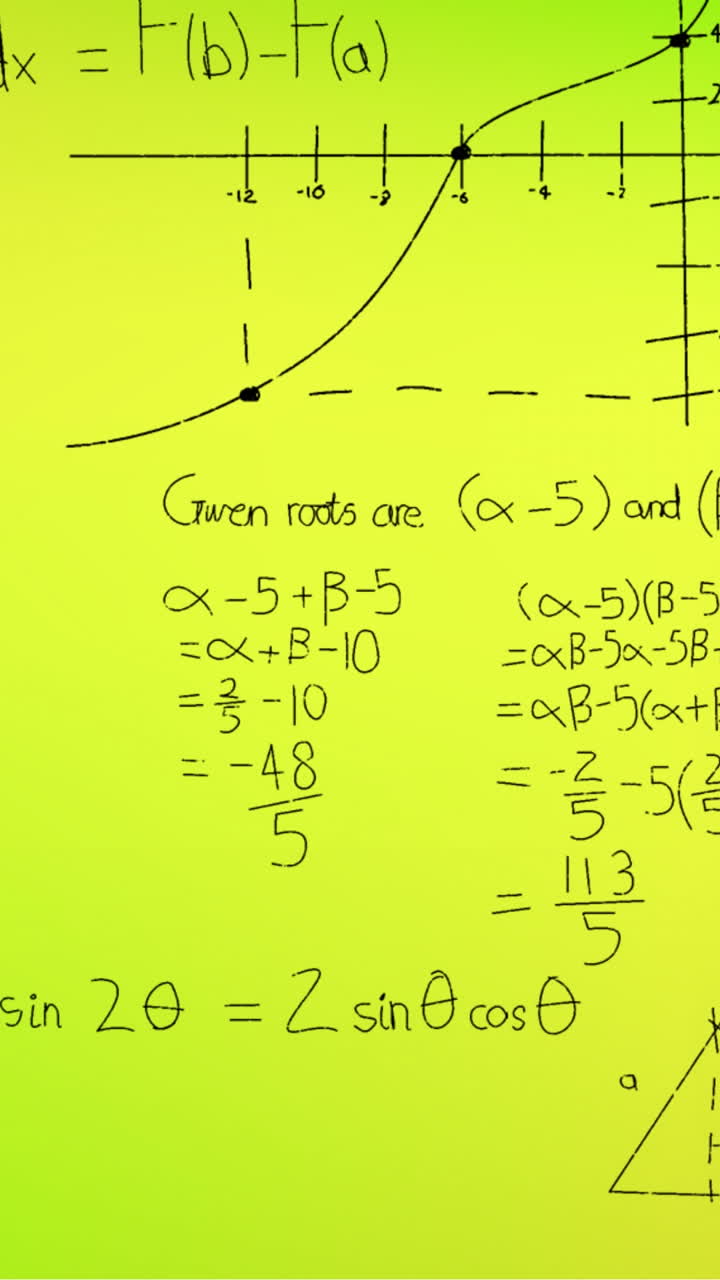 dx = F(b)-F(a)
4
2
-12 -10 -8 -6 -4 -2
Given roots are (α-5) and (β
α-5+β-5
=α+β-10
=2/5 -10
= -48/5
(α-5)(β-5
=αβ-5α-5β-
=αβ-5(α+β
= -2/5 -5(2/5
= 113/5
sin 2θ = 2 sinθ cosθ
a